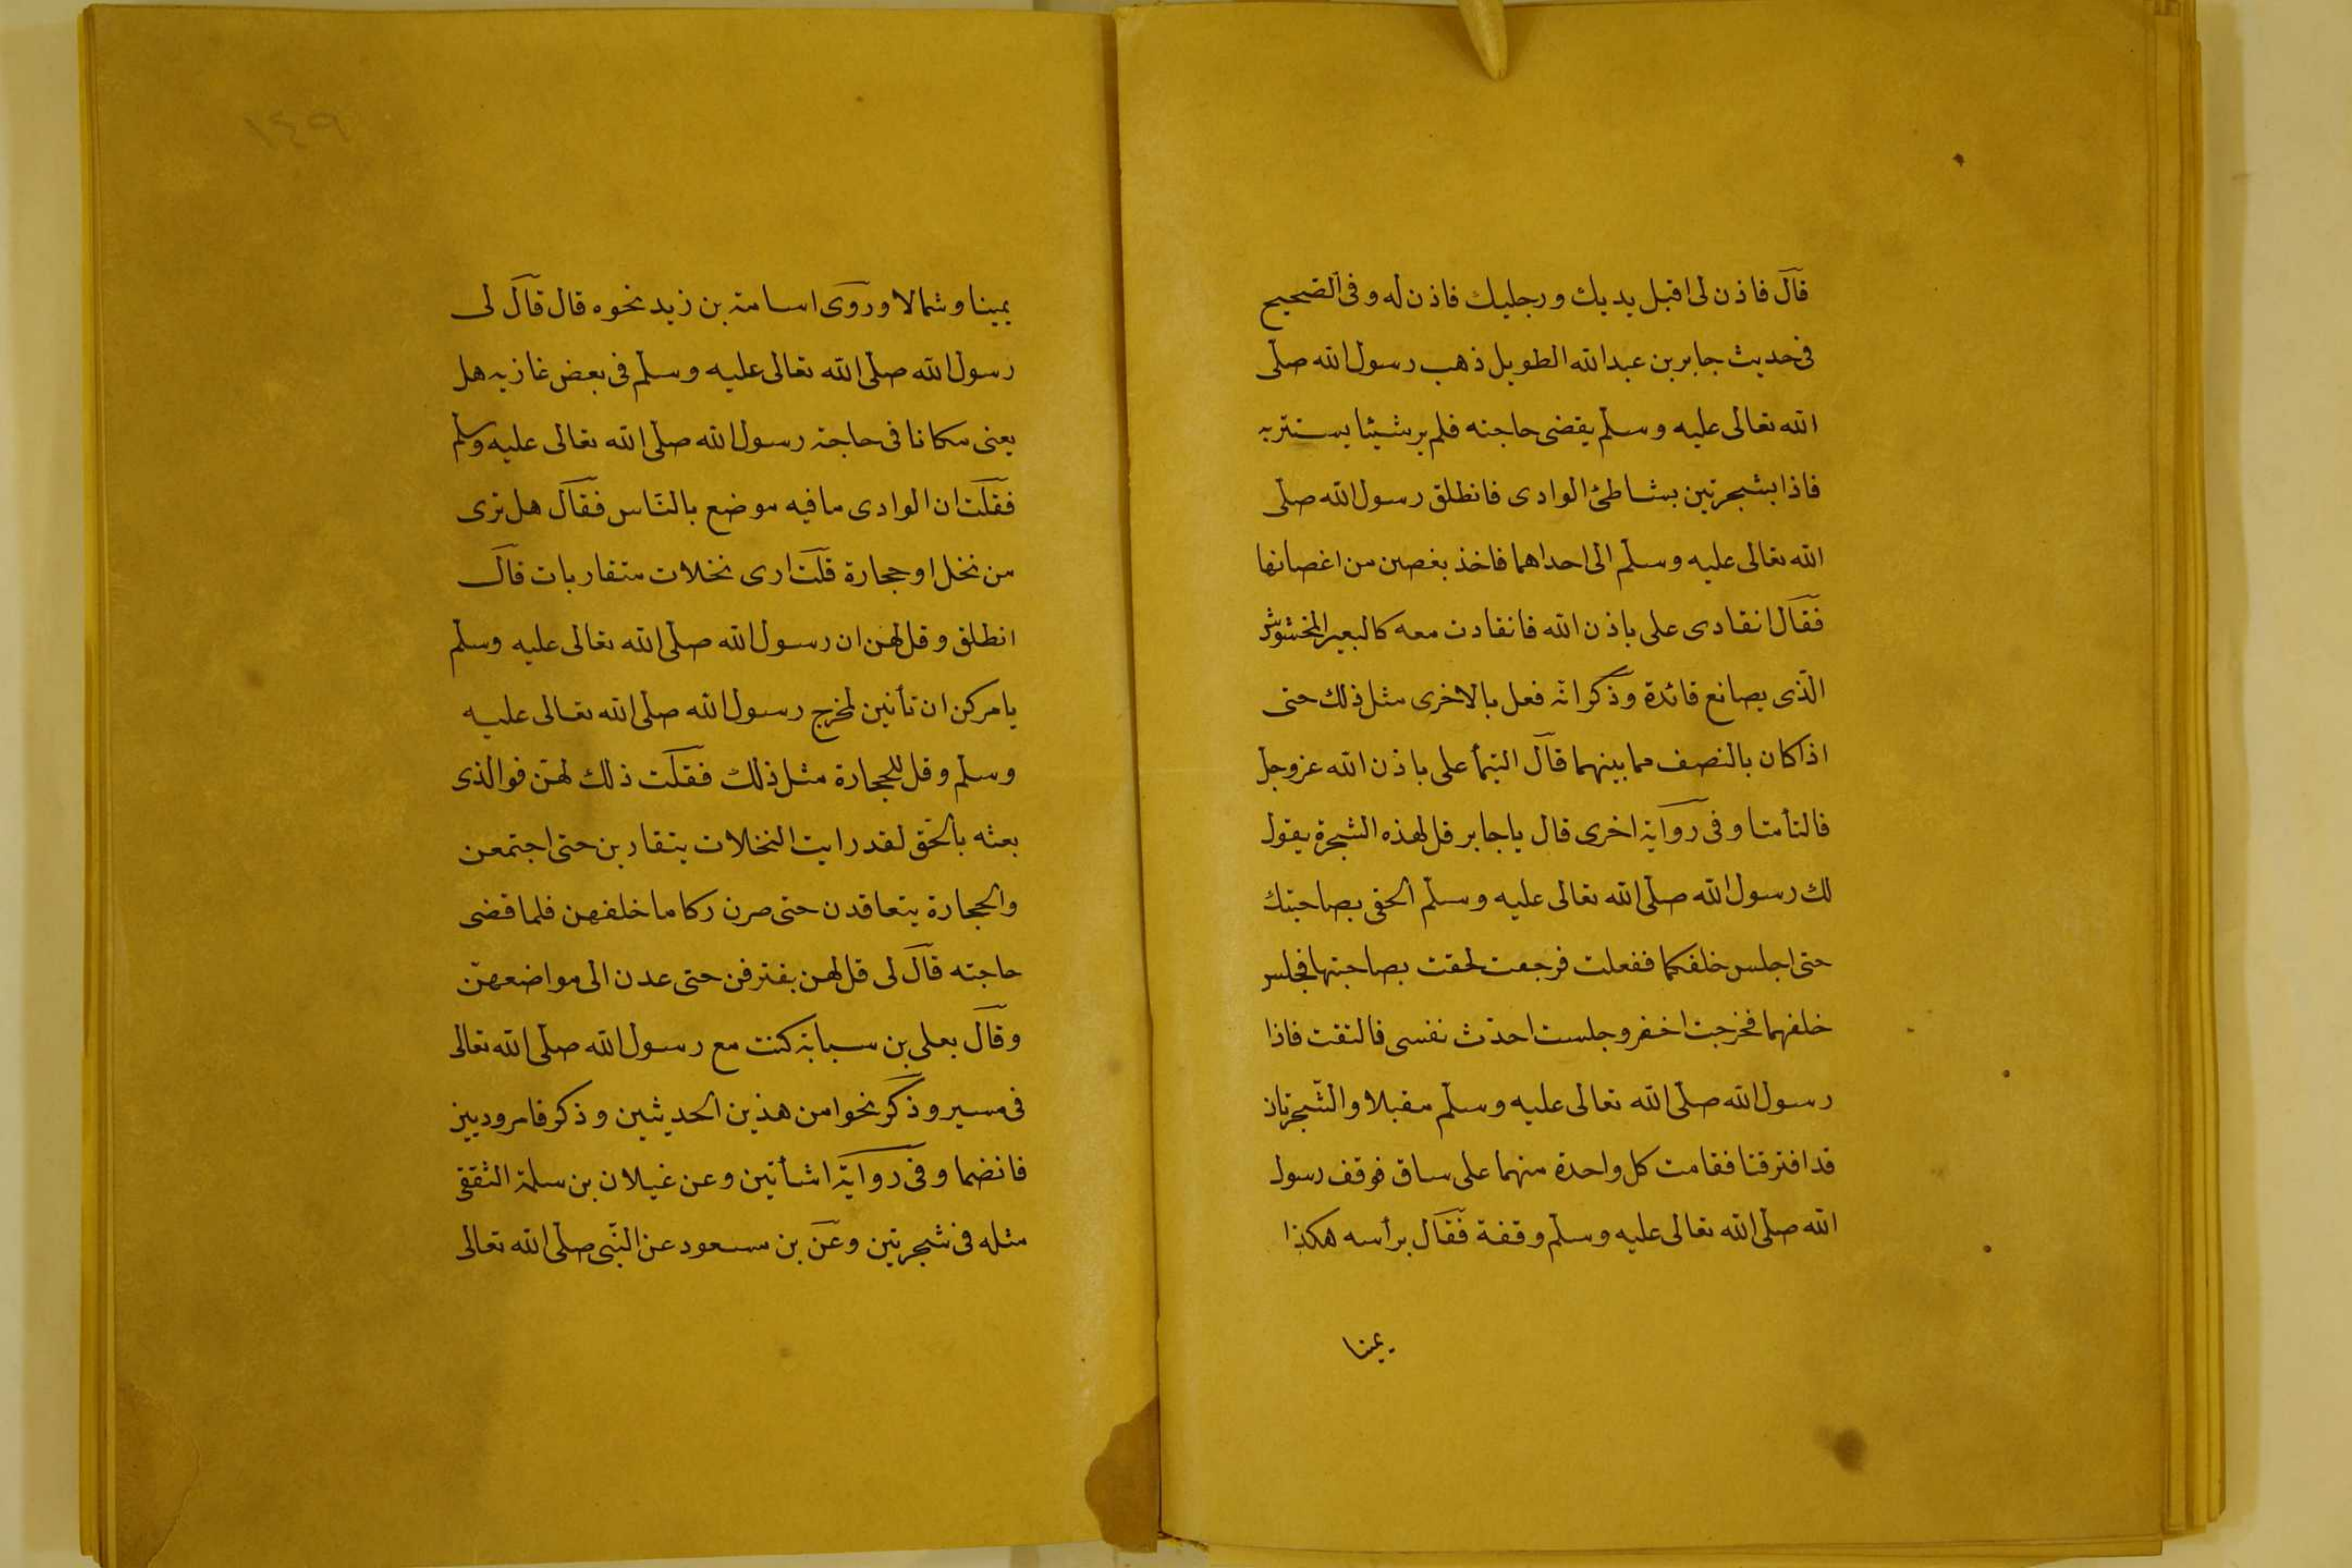 قال فاذن لى اقبل يديك ورجليك فاذن له وفى الصحيح
فى حديث جابر بن عبد الله الطويل ذهب رسول الله صلّى
الله تعالى عليه وسلّم يقضى حاجته فلم ير شيئا يستتر به
فاذا بشجرتين بشاطئ الوادى فانطلق رسول الله صلّى
الله تعالى عليه وسلّم الى احداهما فاخذ بغصن من اغصانها
فقال انقادى على باذن الله فانقادت معه كالبعير المخشوش
الّذى يصانع قائدة وذكر انّه فعل بالاخرى مثل ذلك حتى
اذا كان بالنصف مما بينهما قال التئما على باذن الله عزوجل
فالتأمتا وفى رواية اخرى قال ياجابر قل لهذه الشجرة يقول
لك رسول الله صلّى الله تعالى عليه وسلّم الحقى بصاحبتك
حتى اجلس خلفكما ففعلت فرجعت لحقت بصاحبتها فجلس
خلفهما فخرجت احضر وجلست احدّث نفسى فالتفت فاذا
رسول الله صلّى الله تعالى عليه وسلّم مقبلا والشّجرتان
قد افترقتا فقامت كل واحدة منهما على ساق فوقف رسول
الله صلّى الله تعالى عليه وسلّم وقفة فقال برأسه هكذا
يمينا
١٤٩
يمينا وشمالا وروى اسامة بن زيد نحوه قال قال لى
رسول الله صلّى الله تعالى عليه وسلّم فى بعض غازيه هل
يعنى مكانا فى حاجة رسول الله صلّى الله تعالى عليه وسلم
فقلت ان الوادى مافيه موضع بالنّاس فقال هل ترى
من نخل او حجارة قلت ارى نخلات متقاربات قال
انطلق وقل لهن ان رسول الله صلّى الله تعالى عليه وسلّم
يامركن ان تأتين لمخرج رسول الله صلّى الله تعالى عليه
وسلّم وقل للحجارة مثل ذلك فقلت ذلك لهنّ فوالذى
بعثه بالحّق لقد رايت النخلات يتقاربن حتى اجتمعن
والحجارة يتعاقدن حتى صرن ركاما خلفهن فلما قضى
حاجته قال لى قل لهن يفترقن حتى عدن الى مواضعهنّ
وقال يعلى بن سيابة كنت مع رسول الله صلّى الله تعالى
فى مسير وذكر نحوا من هذين الحديثين وذكر فامر وديين
فانضما وفى رواية اشأتين وعن غيلان بن سلمة الثقفى
مثله فى شجرتين وعن بن مسعود عن النّبى صلّى الله تعالى